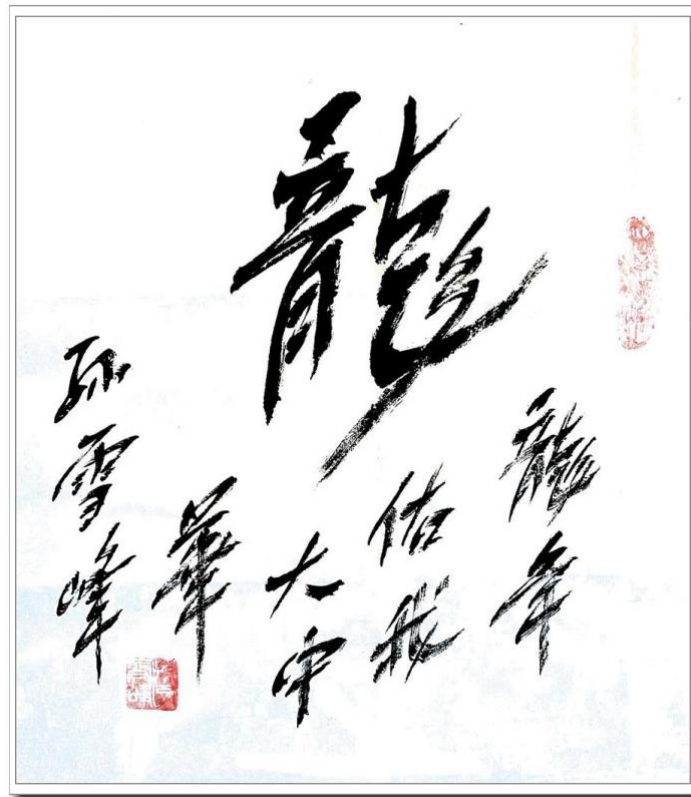 龍
龍年
佑我
大中
華
孙雪峰